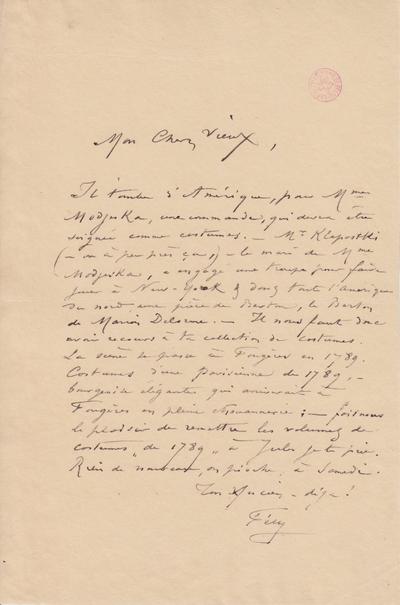 Mon Cher Vieux,
Il tombe d'Amérique, pour Mme
Modjeska, une commande, qui devra être
soignée comme costumes. — Mr Klapostki
(— on à peu près ça,) — le mari de Mme
Modjeska, a engagé une troupe pour faire
jouer à New-York & dans toute l'Amérique
du nord une pièce de Barton, le Barton
de Marion Delorme. — Il nous faut donc
avoir recours à ta collection de costumes.
La scène se passe à Fougères en 1789.
Costumes d'une parisienne de 1789, —
bourgeoise élégante, qui arriverait à
Fougères en pleine chouannerie; — fais nous
le plaisir de remettre les volumes de
costumes „de 1789„ à Jules je te prie.
Rien de nouveau, on pioche, à Samedi.
Ton
Fély